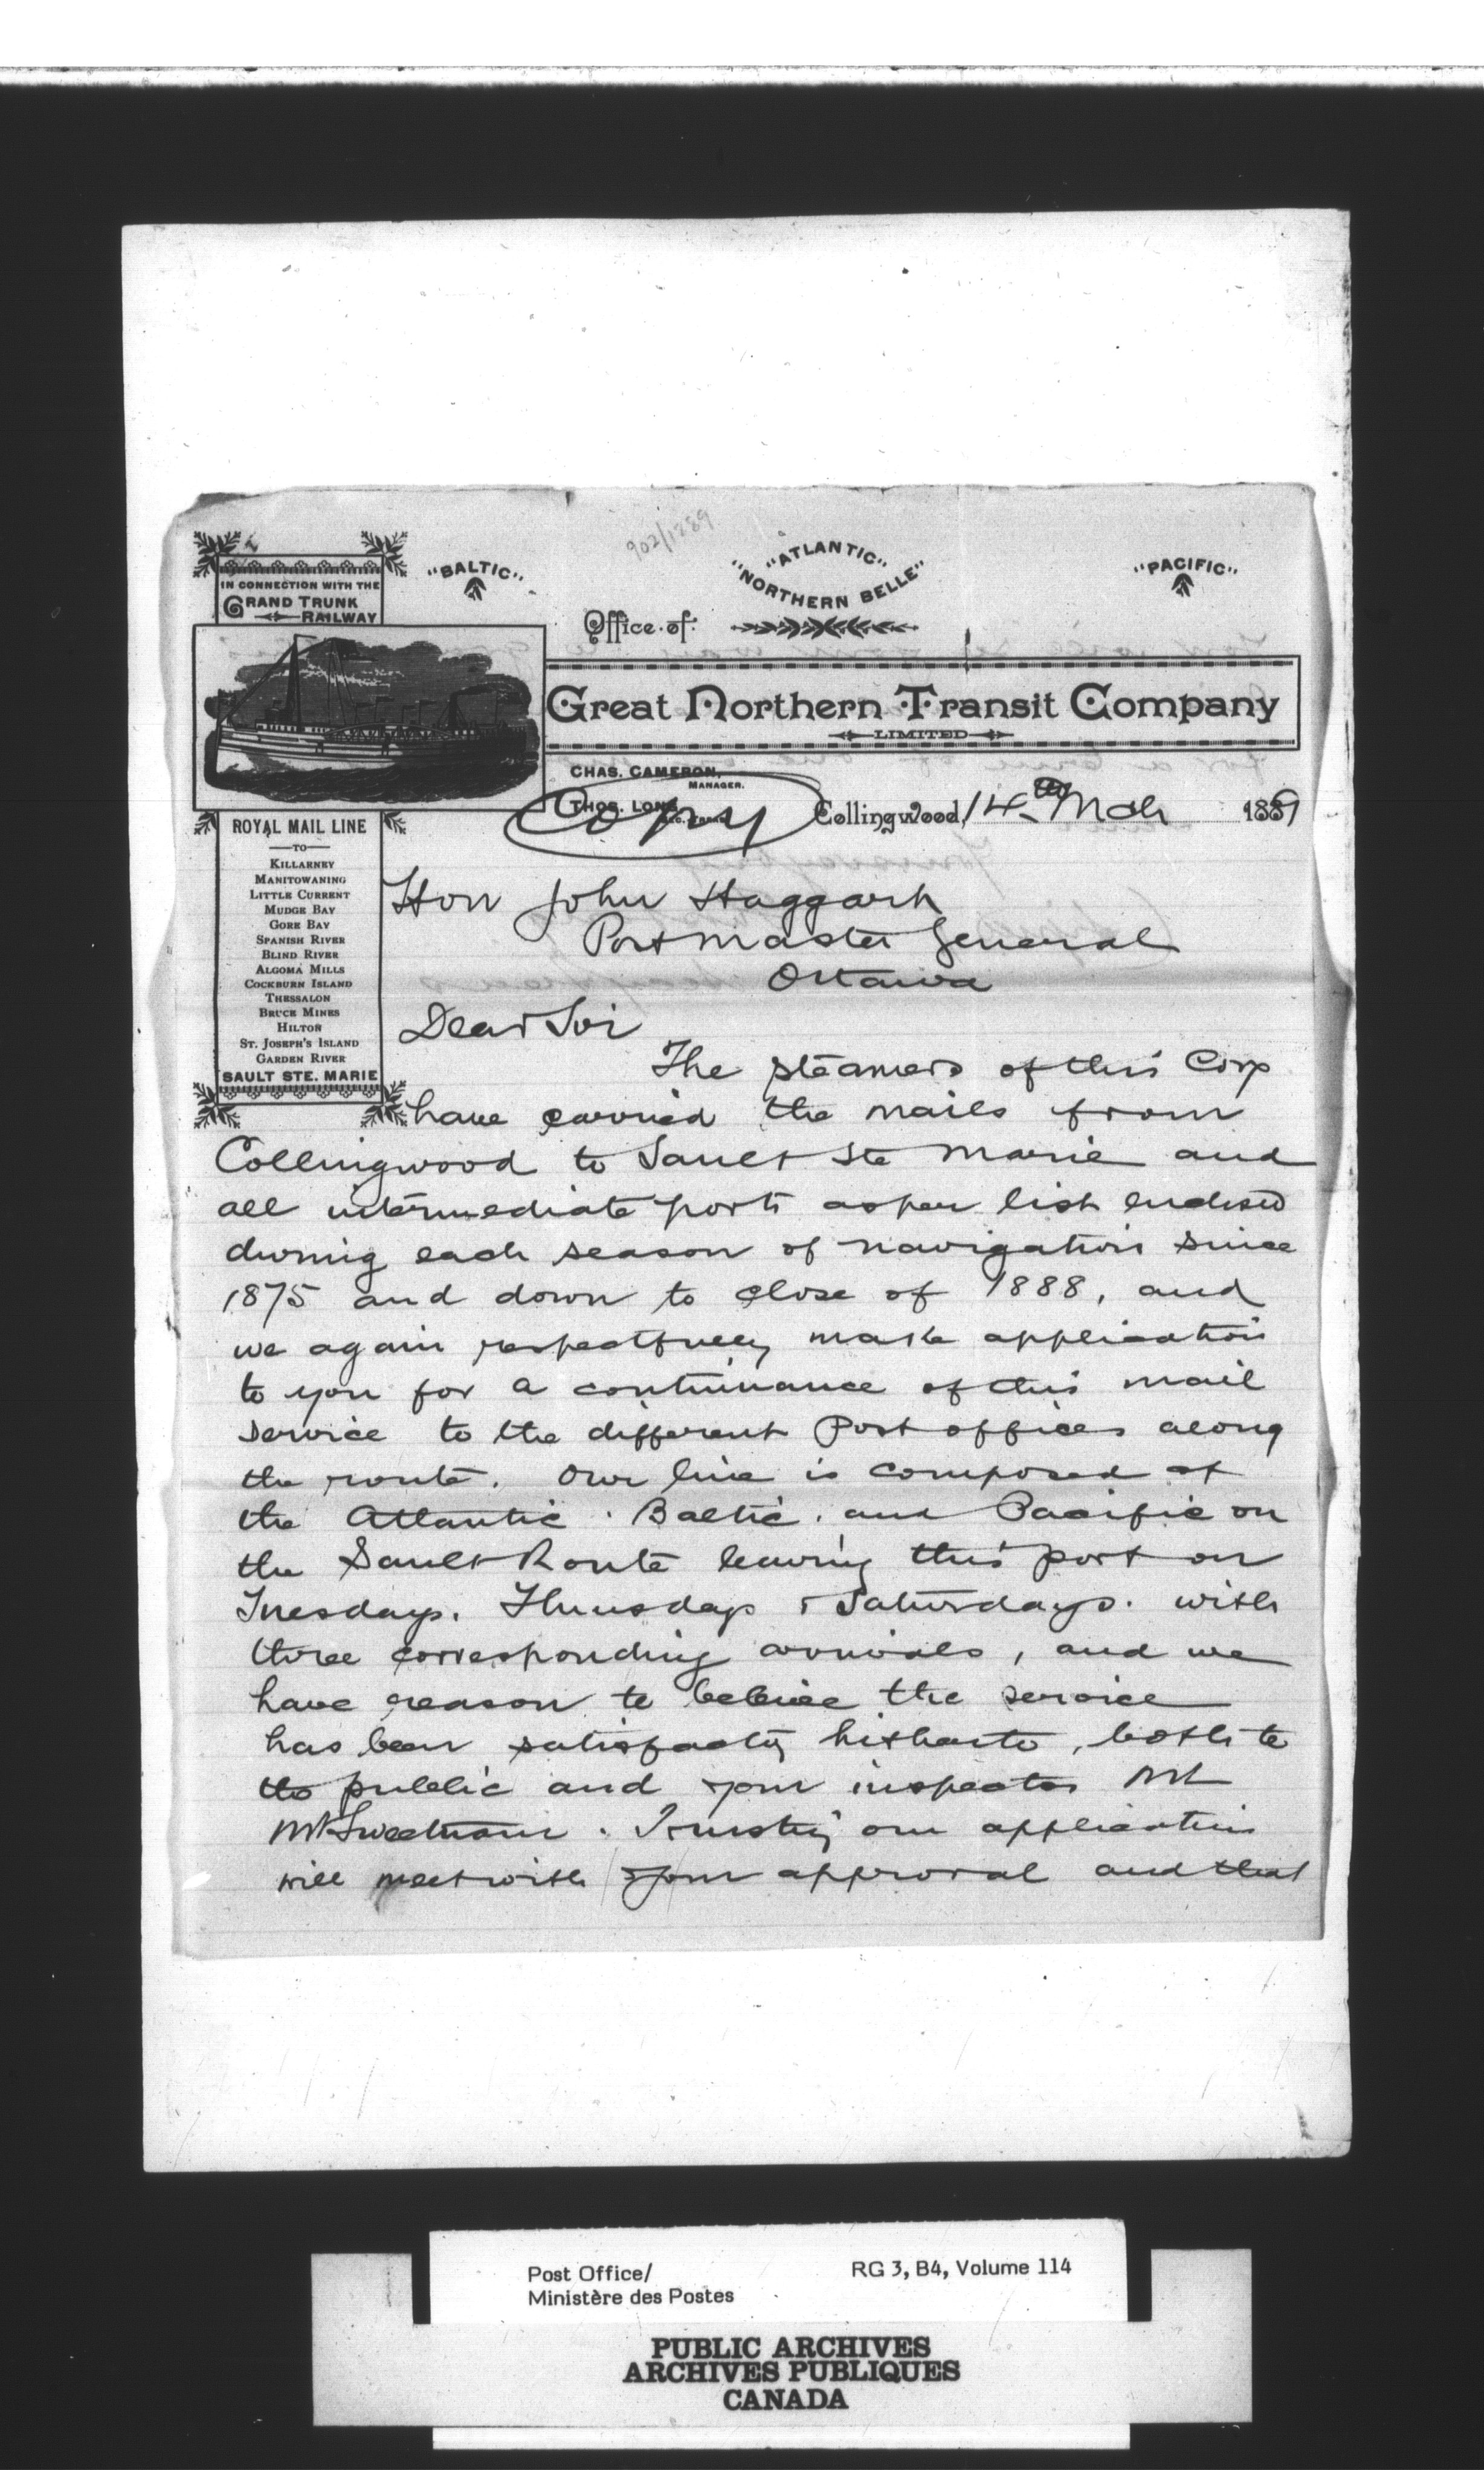 902/1889
IN CONNECTION WITH THE
GRAND TRUNK
RAILWAY
"BALTIC"
"ATLANTIC"
"NORTHERN BELLE"
"PACIFIC"
Office of
Great Northern Transit Company
LIMITED
CHAS. CAMERON,
MANAGER.
THOS. LONG
Copy
Collingwood, 14th Mch 1889
ROYAL MAIL LINE
TO
KILLARNEY
MANITOWANING
LITTLE CURRENT
MUDGE BAY
GORE BAY
SPANISH RIVER
BLIND RIVER
ALGOMA MILLS
COCKBURN ISLAND
THESSALON
BRUCE MINES
HILTON
ST. JOSEPH'S ISLAND
GARDEN RIVER
SAULT STE. MARIE
Hon John Haggart
Postmaster General
Ottawa
Dear Sir
The steamers of this Corp
have carried the mails from
Collingwood to Sault Ste Marie and
all intermediate ports as per list enclosed
during each season of navigation since
1875 and down to close of 1888, and
we again respectfully make application
to you for a continuance of this mail
service to the different Post offices along
the route. Our line is composed of
the Atlantic. Baltic. and Pacific on
the Sault Route leaving this port on
Tuesdays. Thursdays & Saturdays. with
three corresponding arrivals, and we
have reason to believe the service
has been satisfactory hitherto, both to
the public and your inspector Mr
Sweetnam. Trusting our application
will meet with your approval and that
Post Office/
Ministère des Postes
RG 3, B4, Volume 114
PUBLIC ARCHIVES
ARCHIVES PUBLIQUES
CANADA